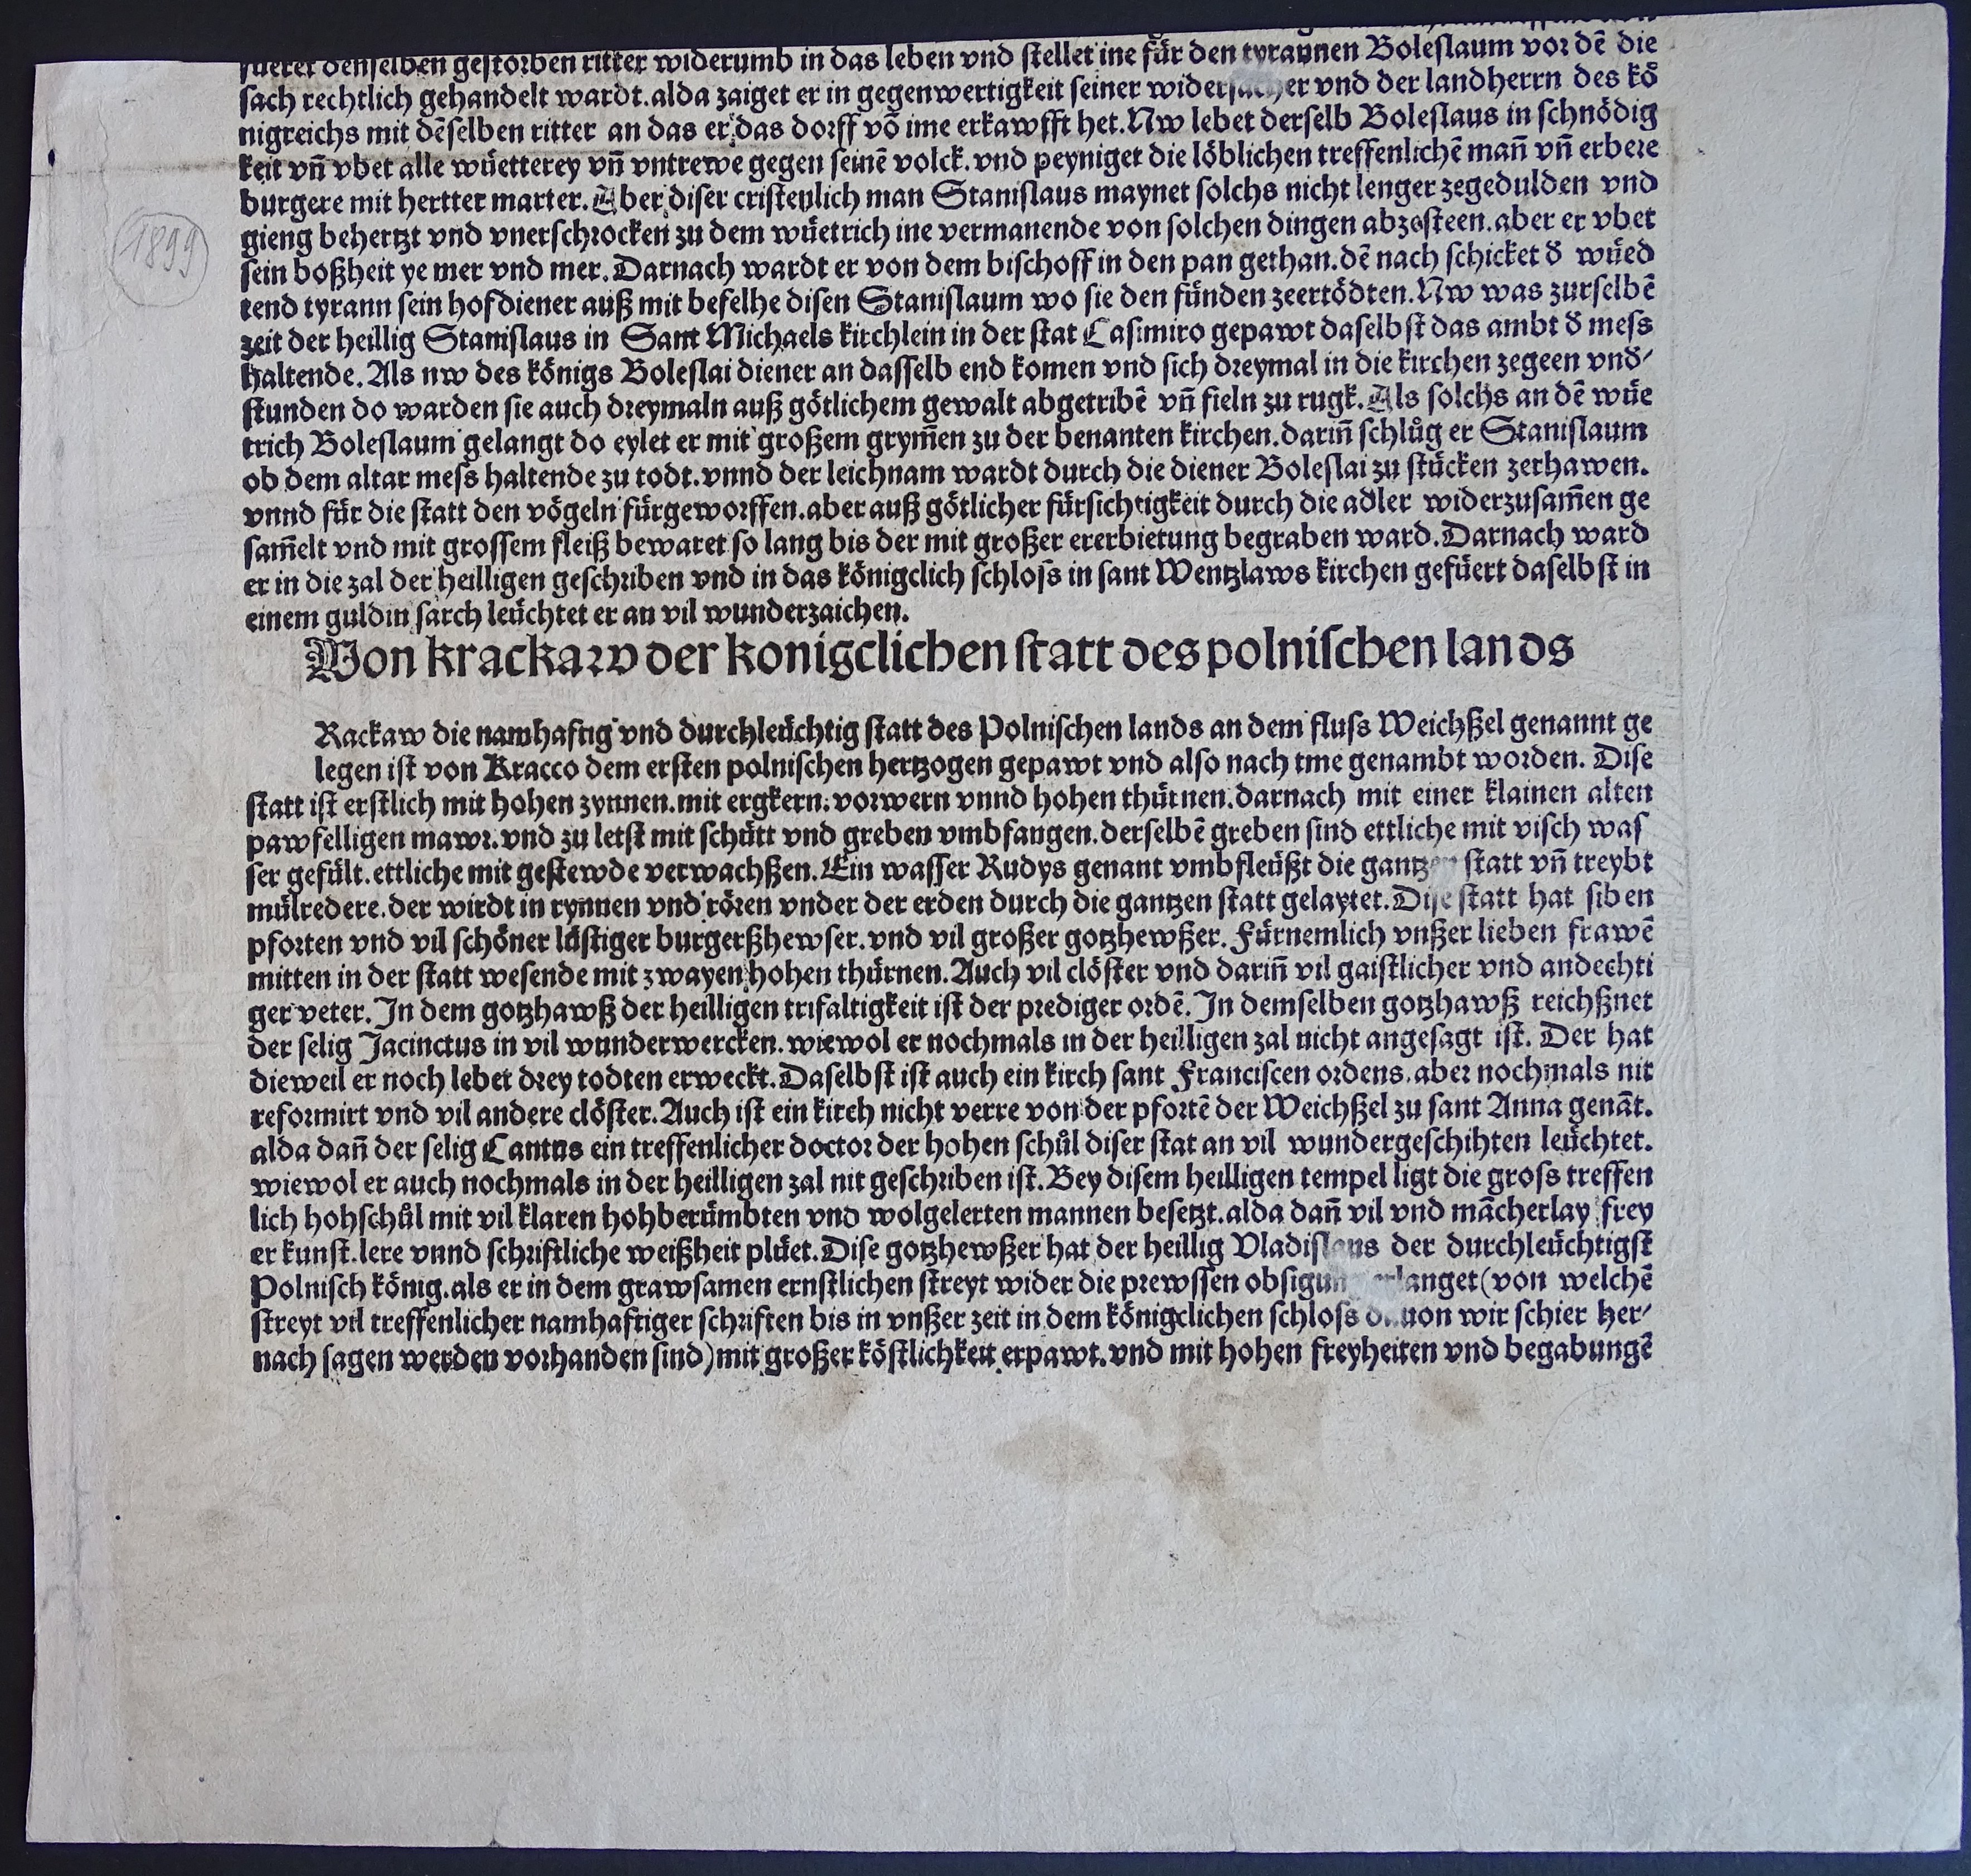 fueret denselben gestorben ritter widerumb in das leben vnd stellet ine für den tyrannen Boleslaum vor dē die
sach rechtlich gehandelt wardt. alda zaiget er in gegenwertigkeit seiner widersacher vnd der landherrn des kö
nigreichs mit dēselben ritter an das er das dorff vō ime erkawfft het. Nw lebet derselb Boleslaus in schnödig
keit vn̄ vbet alle wüetterey vn̄ vntrewe gegen seinē volck. vnd peyniget die löblichen treffenlichē man̄ vn̄ erbere
burgere mit hertter marter. Aber diser cristenlich man Stanislaus maynet solchs nicht lenger zegedulden vnd
gieng behertzt vnd vnerschrocken zu dem wüetrich ine vermanende von solchen dingen abzesteen. aber er vbet
sein boßheit ye mer vnd mer. Darnach wardt er von dem bischoff in den pan gethan. dē nach schicket d̄ wüed
tend tyrann sein hofdiener auß mit befelhe disen Stanislaum wo sie den fünden zeertödten. Nw was zurselbē
zeit der heillig Stanislaus in Sant Michaels kirchlein in der stat Casimiro gepawt daselbst das ambt d̄ mess
haltende. Als nw des königs Boleslai diener an dasselb end komen vnd sich dreymal in die kirchen zegeen vnd̄/
stunden do warden sie auch dreymaln auß götlichem gewalt abgetribē vn̄ fieln zu rugk. Als solchs an dē wüe
trich Boleslaum gelangt do eylet er mit großem grym̄en zu der benanten kirchen. darin̄ schlůg er Stanislaum
ob dem altar mess haltende zu todt. vnnd der leichnam wardt durch die diener Boleslai zu stücken zerhawen.
vnnd für die statt den vögeln fürgeworffen. aber auß götlicher fürsichtigkeit durch die adler widerzusam̄en ge
sam̄elt vnd mit grossem fleiß bewaret so lang bis der mit großer ererbietung begraben ward. Darnach ward
er in die zal der heilligen geschriben vnd in das königclich schloss in sant Wentzlaws kirchen gefüert daselbst in
einem guldin sarch leüchtet er an vil wunderzaichen.
Von krackaw der konigclichen statt des polnischen lands
Rackaw die namhaftig vnd durchleüchtig statt des Polnischen lands an dem fluss Weichßel genannt ge
legen ist von Kracco dem ersten polnischen hertzogen gepawt vnd also nach ime genambt worden. Dise
statt ist erstlich mit hohen zynnen. mit ergkern. vorwern vnnd hohen thürnen. darnach mit einer klainen alten
pawfelligen mawr. vnd zu letst mit schütt vnd greben vmbfangen. derselbē greben sind ettliche mit visch was
ser gefült. ettliche mit gestewde verwachßen. Ein wasser Rudys genant vmbfleüßt die gantzen statt vn̄ treybt
mülredere. der wirdt in rynnen vnd rören vnder der erden durch die gantzen statt gelaytet. Dise statt hat siben
pforten vnd vil schöner lüstiger burgerßhewser. vnd vil großer gotzhewßer. Fürnemlich vnßer lieben frawē
mitten in der statt wesende mit zwayen hohen thürnen. Auch vil clöster vnd darin̄ vil gaistlicher vnd andechti
ger veter. In dem gotzhawß der heilligen trifaltigkeit ist der prediger ordē. In demselben gotzhawß reichßnet
der selig Jacinctus in vil wunderwercken. wiewol er nochmals in der heilligen zal nicht angesagt ist. Der hat
dieweil er noch lebet drey todten erweckt. Daselbst ist auch ein kirch sant Franciscen ordens. aber nochmals nit
reformirt vnd vil andere clöster. Auch ist ein kirch nicht verre von der pfortē der Weichßel zu sant Anna genāt.
alda dan̄ der selig Cantus ein treffenlicher doctor der hohen schůl diser stat an vil wundergeschihten leüchtet.
wiewol er auch nochmals in der heilligen zal nit geschriben ist. Bey disem heilligen tempel ligt die gross treffen
lich hohschůl mit vil klaren hohberümbten vnd wolgelerten mannen besetzt. alda dan̄ vil vnd mācherlay frey
er kunst. lere vnnd schriftliche weißheit plüet. Dise gotzhewßer hat der heillig Vladislaus der durchleüchtigst
Polnisch könig. als er in dem grawsamen ernstlichen streyt wider die prewssen obsigung erlanget (von welchē
streyt vil treffenlicher namhaftiger schriften bis in vnßer zeit in dem königclichen schloss dauon wir schier her/
nach sagen werden vorhanden sind) mit großer köstlichkeit erpawt. vnd mit hohen freyheiten vnd begabungē
1899